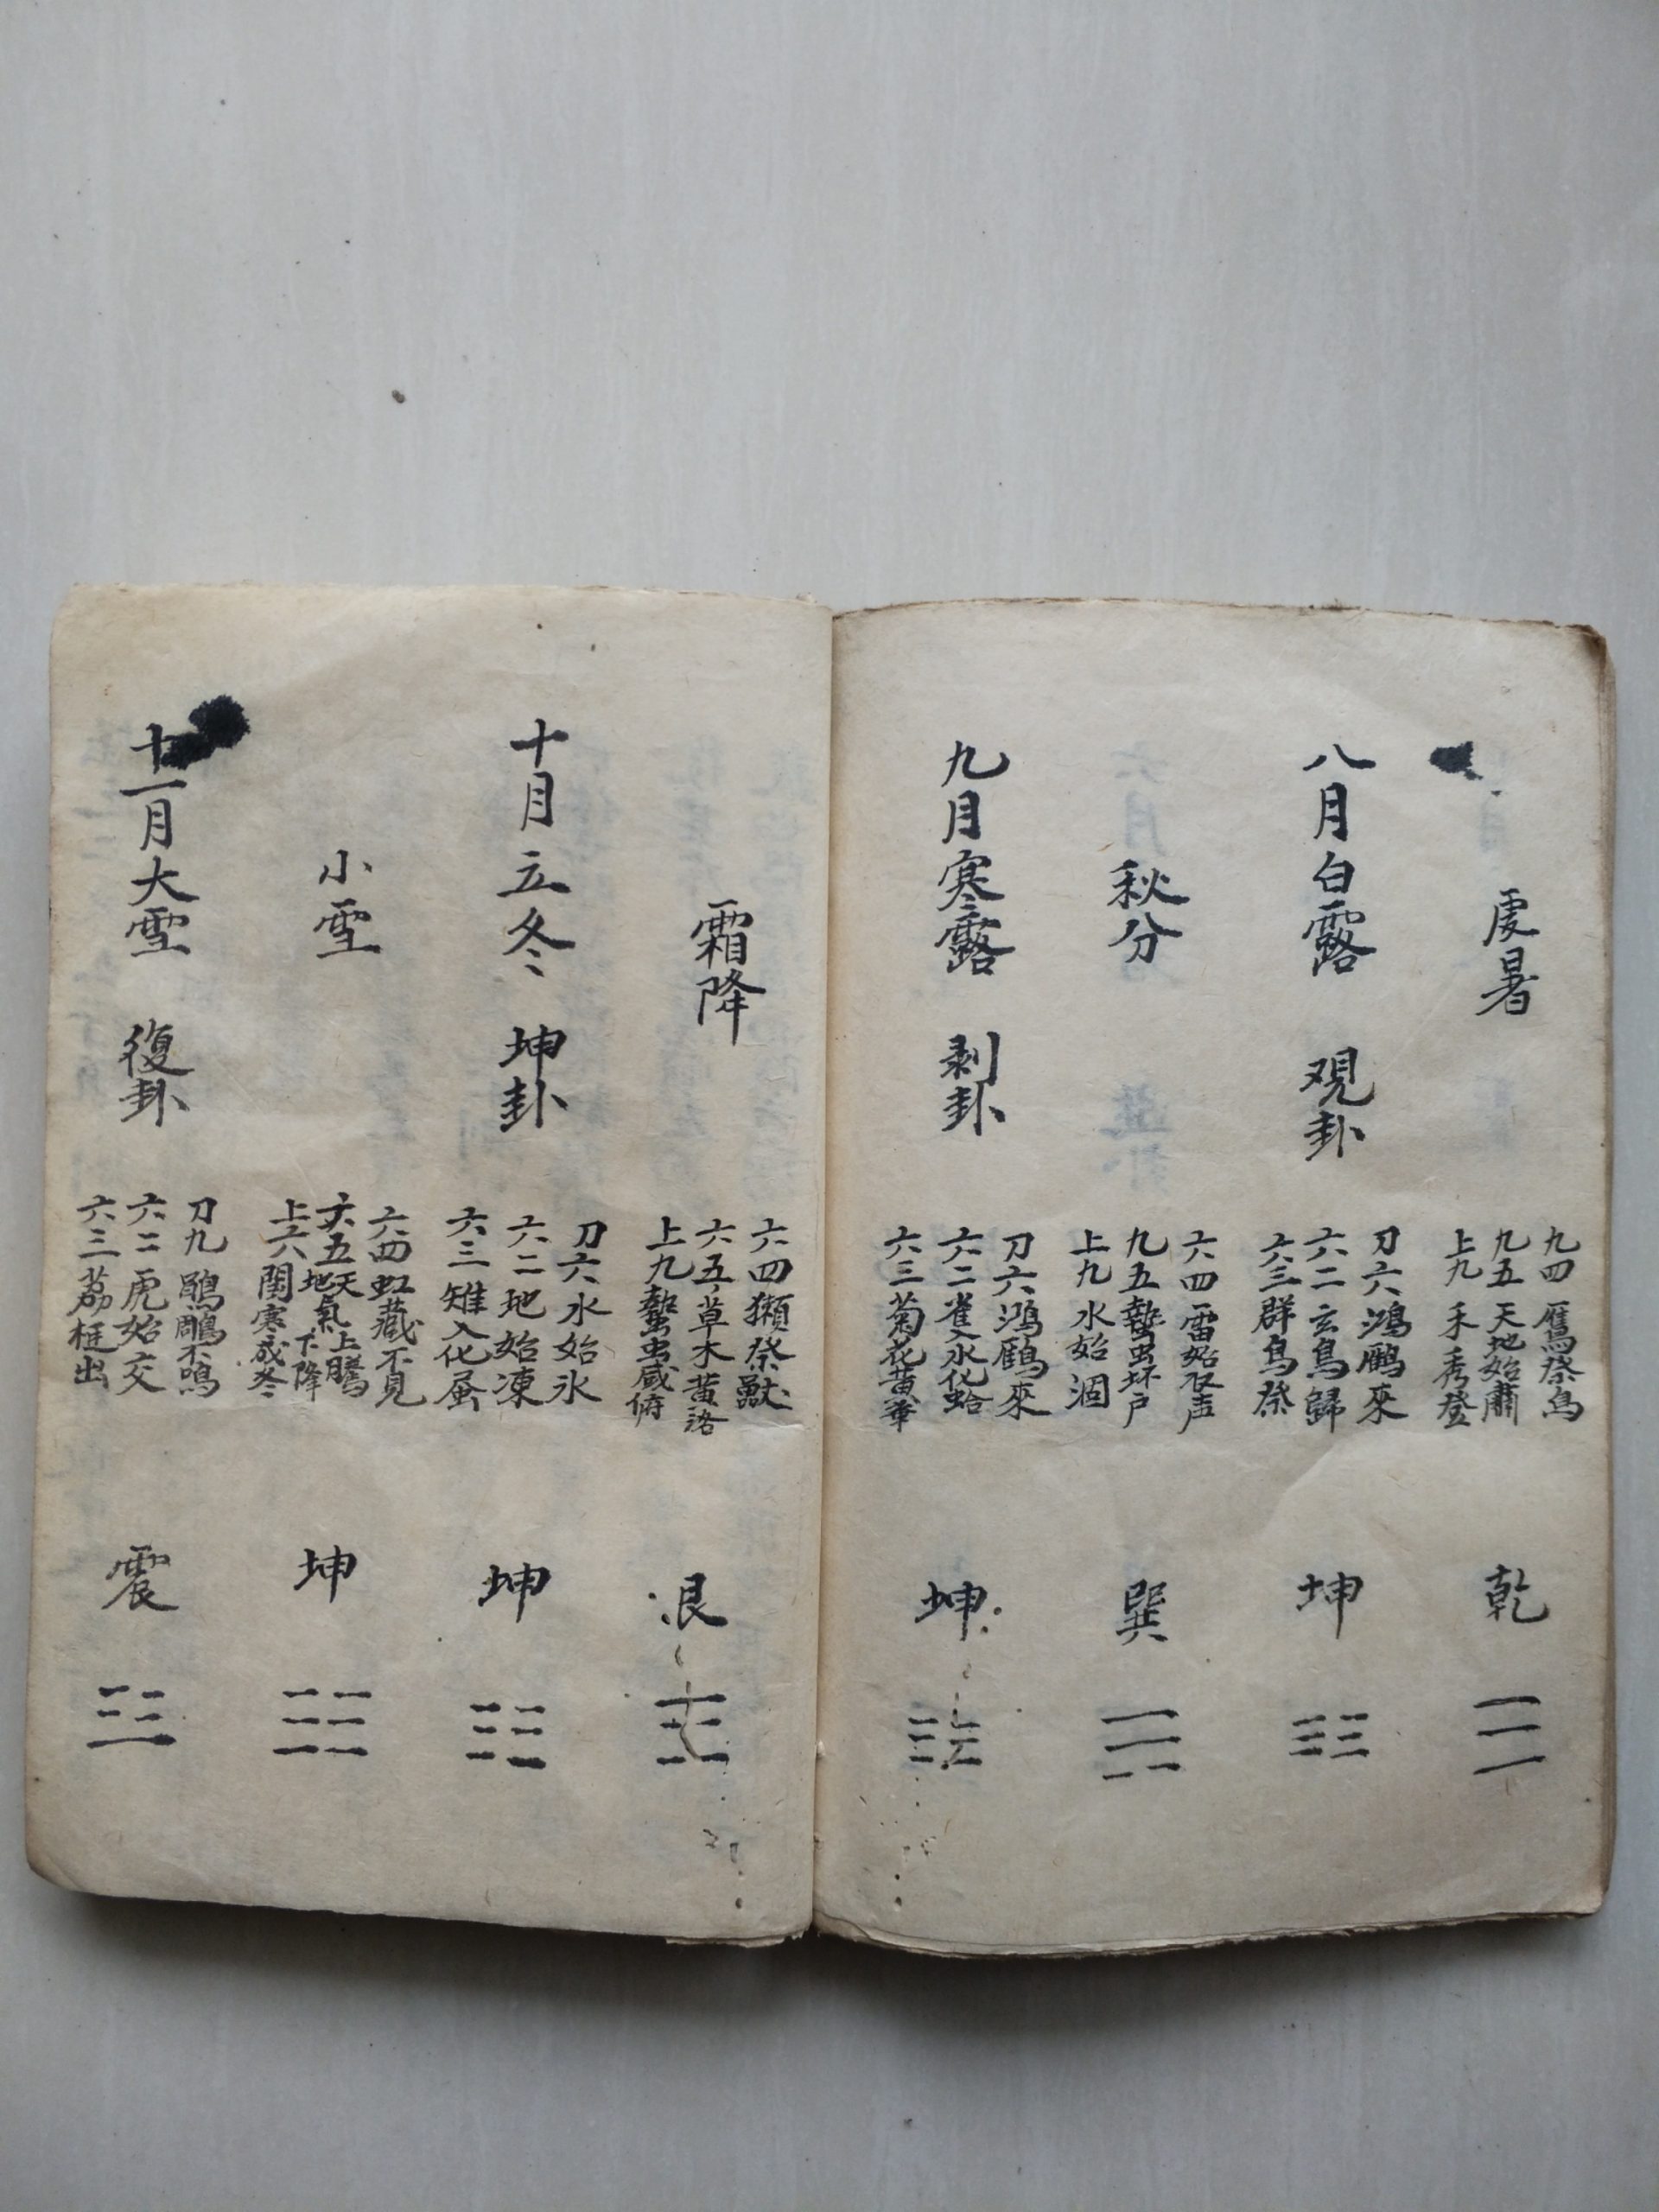 處暑
九四 鴈祭鳥
九五 天地始肅
上九 禾秀登
乾
八月白露 观卦
刀六鴻鴈來
六二玄鳥歸
六三群鳥祭
坤
秋分
六四雷始収声
九五蟄虫坏户
上九水始涸
巽
九月寒露 剥卦
刀六鴻鴈來
六二雀入水化蛤
六三菊花黄華
坤
霜降
六四獺祭獸
六五草木黄落
上九蟄虫咸俯
艮
十月立冬 坤卦
刀六水始氷
六二地始凍
六三雉入化蜃
坤
小雪
六四虹藏不見
六五天氣上騰地下降
上六閉寒成冬
坤
十一月大雪 復卦
刀九鶡鵰不鳴
六二虎始交
六三荔挺出
震